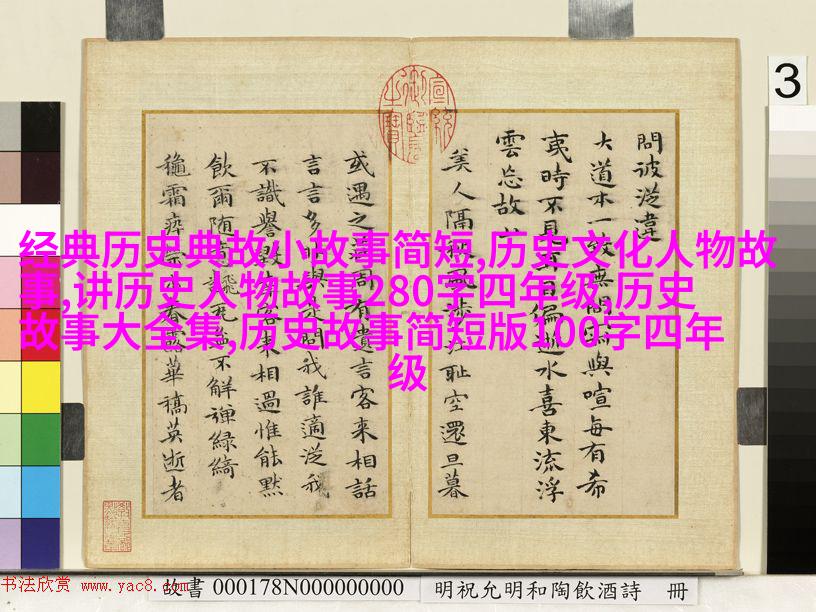 3
经典历史典故小故事简短,历史文化人物故
事,讲历史人物故事280字四年级,历史
故事大全集,历史故事简短版100字四年
级
問彼
大道本一致無與喧每有希
夷時不見偏逝水喜東流浮
雲忘故
美人隔耻空還旦暮
或遇之有遺言客來相話
言言多與問我誰適從我
不識譽客來相過惟能默
飲爾随不解禪綠綺
霜春露華英逝者
故書 000178N000000000
明祝允明和陶飲酒詩 冊
书法欣赏 www.yac8.com